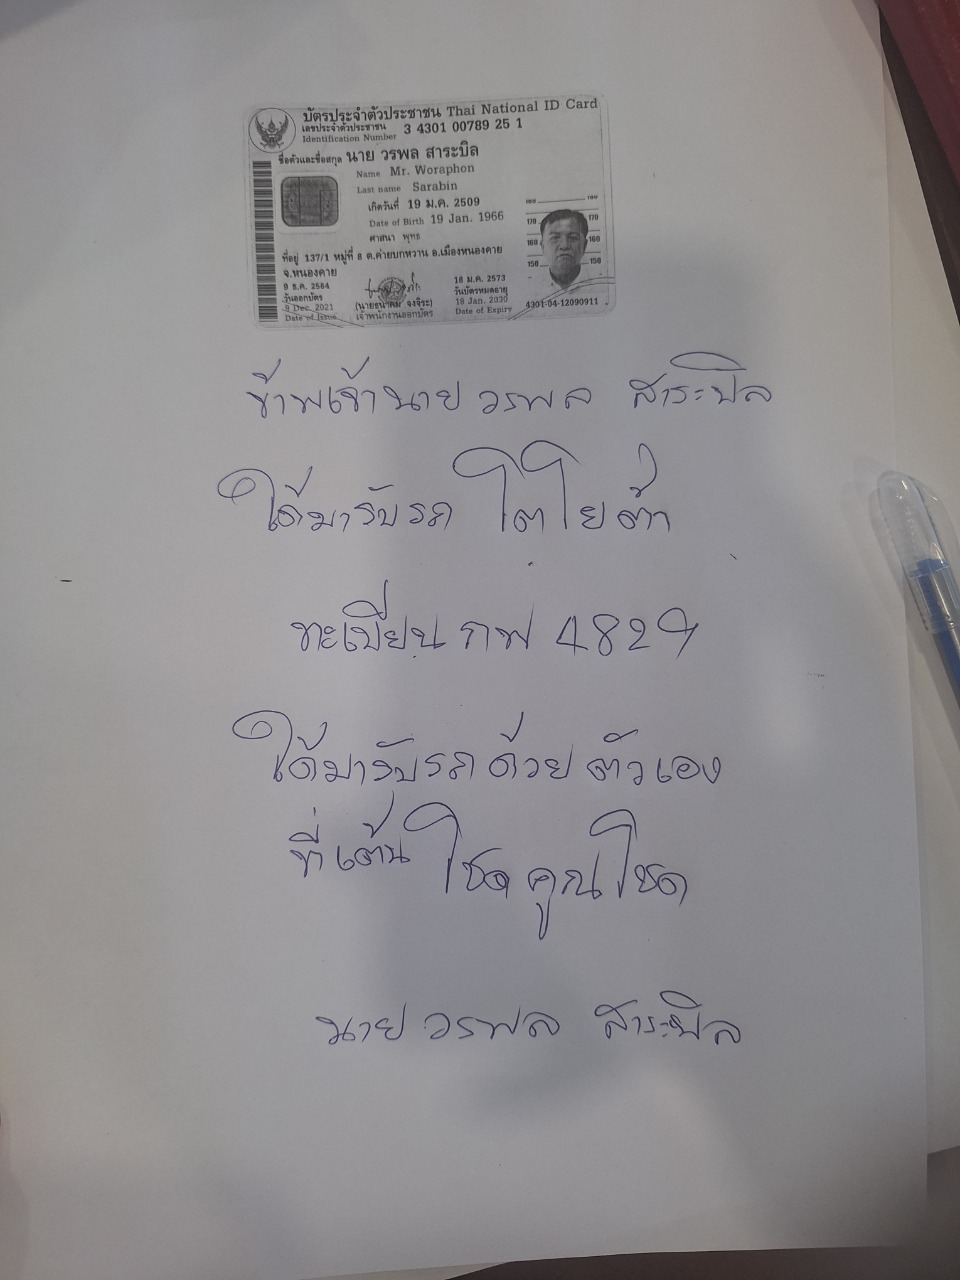 บัตรประจำตัวประชาชน Thai National ID Card
เลขประจำตัวประชาชน 3 4301 00789 25 1
Identification Number
ชื่อตัวและชื่อสกุล นาย วรพล สาระบิล
Name Mr. Woraphon
Last name Sarabin
เกิดวันที่ 19 ม.ค. 2509
Date of Birth 19 Jan. 1966
ศาสนา พุทธ
ที่อยู่ 137/1 หมู่ที่ 8 ต.ค่ายบกหวาน อ.เมืองหนองคาย
จ.หนองคาย
9 ธ.ค. 2564
วันออกบัตร
9 Dec. 2021
Date of Issue
เจ้าพนักงานออกบัตร
18 ม.ค. 2573
วันบัตรหมดอายุ
18 Jan. 2030
Date of Expiry
170 170
160 160
150 150
4301-04-12090911
ข้าพเจ้านาย วรพล สาระบิล
ได้มารับรถ โตโยต้า
ทะเบียน กฬ 4829
ได้มารับรถด้วยตัวเอง
ที่เต้น โชคคูณโชค
นาย วรพล สาระบิล